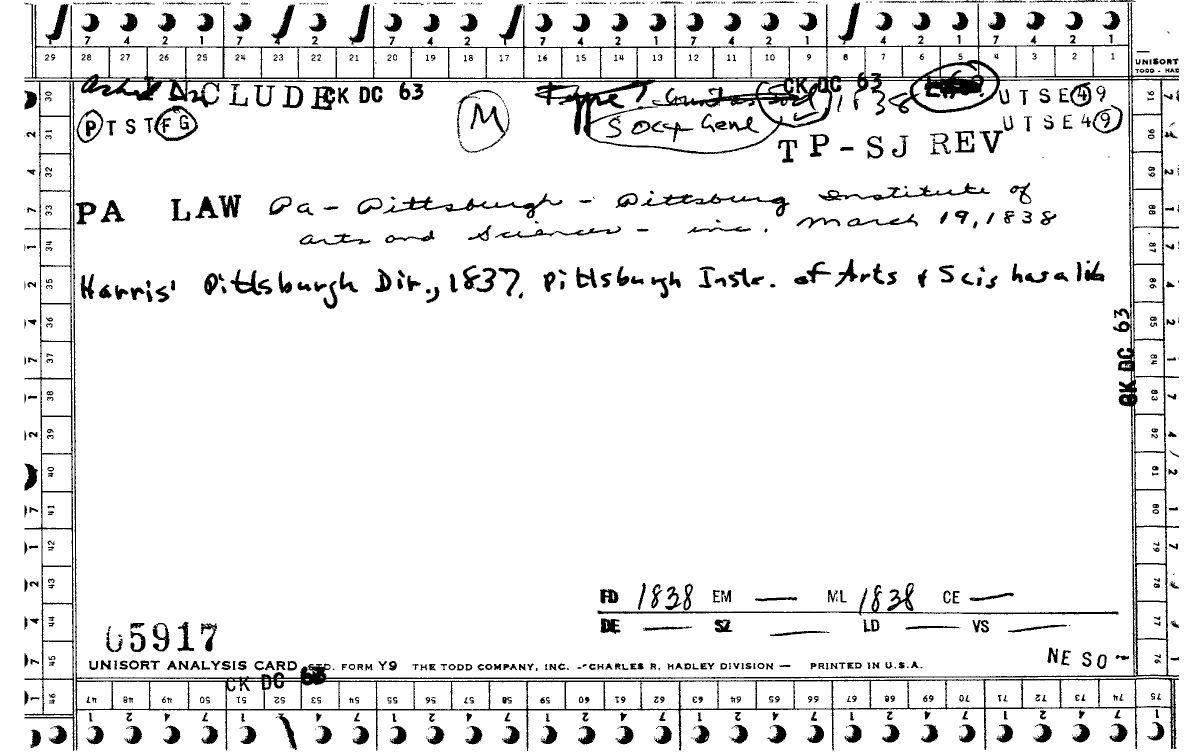 7 4 2 1 7 4 2 1 7 4 2 1 7 4 2 1 7 4 2 1 7 4 2 1 7 4 2 1
29 28 27 26 25 24 23 22 21 20 19 18 17 16 15 14 13 12 11 10 9 8 7 6 5 4 3 2 1
UNISORT
CLUDE CK DC 63
Type ? CK DC 63 1838 UTSE49
PTSTFG
M
Soc4 Gene
UTSE49
TP-SJ REV
PA LAW Pa - Pittsburgh - Pittsburg Institute of
Arts and Sciences - inc. March 19, 1838
Harris' Pittsburgh Dir., 1837, Pittsburgh Inste. of Arts & Scis has a lib
CK DC 63
FD 1838 EM — ML 1838 CE —
DE — SZ — LD — VS —
05917
NE SO -
UNISORT ANALYSIS CARD STD. FORM Y9 THE TODD COMPANY, INC. - CHARLES R. HADLEY DIVISION — PRINTED IN U.S.A.
CK DC 63
47 48 49 50 51 52 53 54 55 56 57 58 59 60 61 62 63 64 65 66 67 68 69 70 71 72 73 74 75